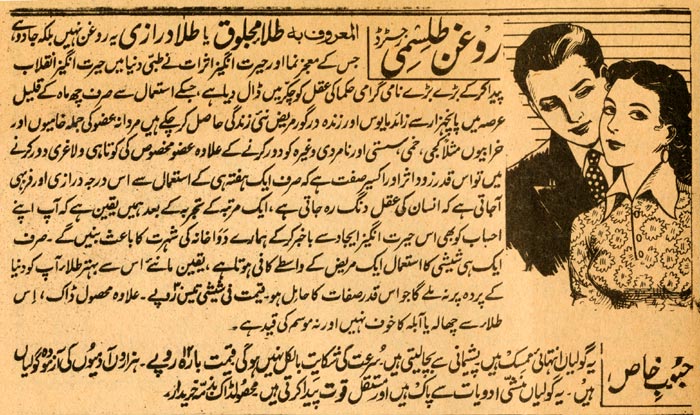 روغن طلسمی رجسٹرڈ
المعروف بہ طلا مجلوق یا طلا درازی یہ روغن نہیں بلکہ جادو ہے
جس کے معجز نما اور حیرت انگیز اثرات نے طبّی دنیا میں حیرت انگیز انقلاب
پیدا کر کے بڑے بڑے نامی گرامی حکما کی عقل کو چکر میں ڈال دیا ہے، جسکے استعمال سے صرف چھ ماہ کے قلیل
عرصہ میں پانچہزار سے زائد مایوس اور زندہ درگور مریض نئی زندگی حاصل کر چکے ہیں مردانہ عضو کی جملہ خامیوں اور
خرابیوں مثلاً کجی، خمی، سستی اور نامردی وغیرہ کو دور کرنے کے علاوہ عضو مخصوص کی کوتاہی ولاغری دور کرنے
میں تو اس قدر زود اثر اور اکسیر صفت ہے کہ صرف ایک ہفتہ ہی کے استعمال سے اس درجہ درازی اور فربہی
آجاتی ہے کہ انسان کی عقل دنگ رہ جاتی ہے، ایک مرتبہ کے تجربہ کے بعد ہمیں یقین ہے کہ آپ اپنے
احباب کو بھی اس حیرت انگیز ایجاد سے باخبر کر کے ہمارے دواخانہ کی شہرت کا باعث بنیں گے۔ صرف
ایک ہی شیشی کا استعمال ایک مریض کے واسطے کافی ہوتا ہے، یقین مانئے اس سے بہتر طلا آپ کو دنیا
کے پردہ پر نہ ملے گا جو اس قدر صفات کا حامل ہو۔ قیمت فی شیشی تین ۳ روپے۔ علاوہ محصول ڈاک، اِس
طلا سے چھالہ یا آبلہ کا خوف نہیں اور نہ موسم کی قید ہے۔
حبوب خاص
یہ گولیاں انتہائی ممسک ہیں پشیمانی سے بچالیتی ہیں۔ سرعت کی شکایت بالکل نہیں ہوگی قیمت بارہ ۱۲ روپے۔ ہزاروں آدمیوں کی آزمودہ گولیاں
ہیں۔ یہ گولیاں منشی ادویات سے پاک ہیں اور مستقل قوت پیدا کرتی ہیں۔ محصولڈاک بذمہ خریدار۔